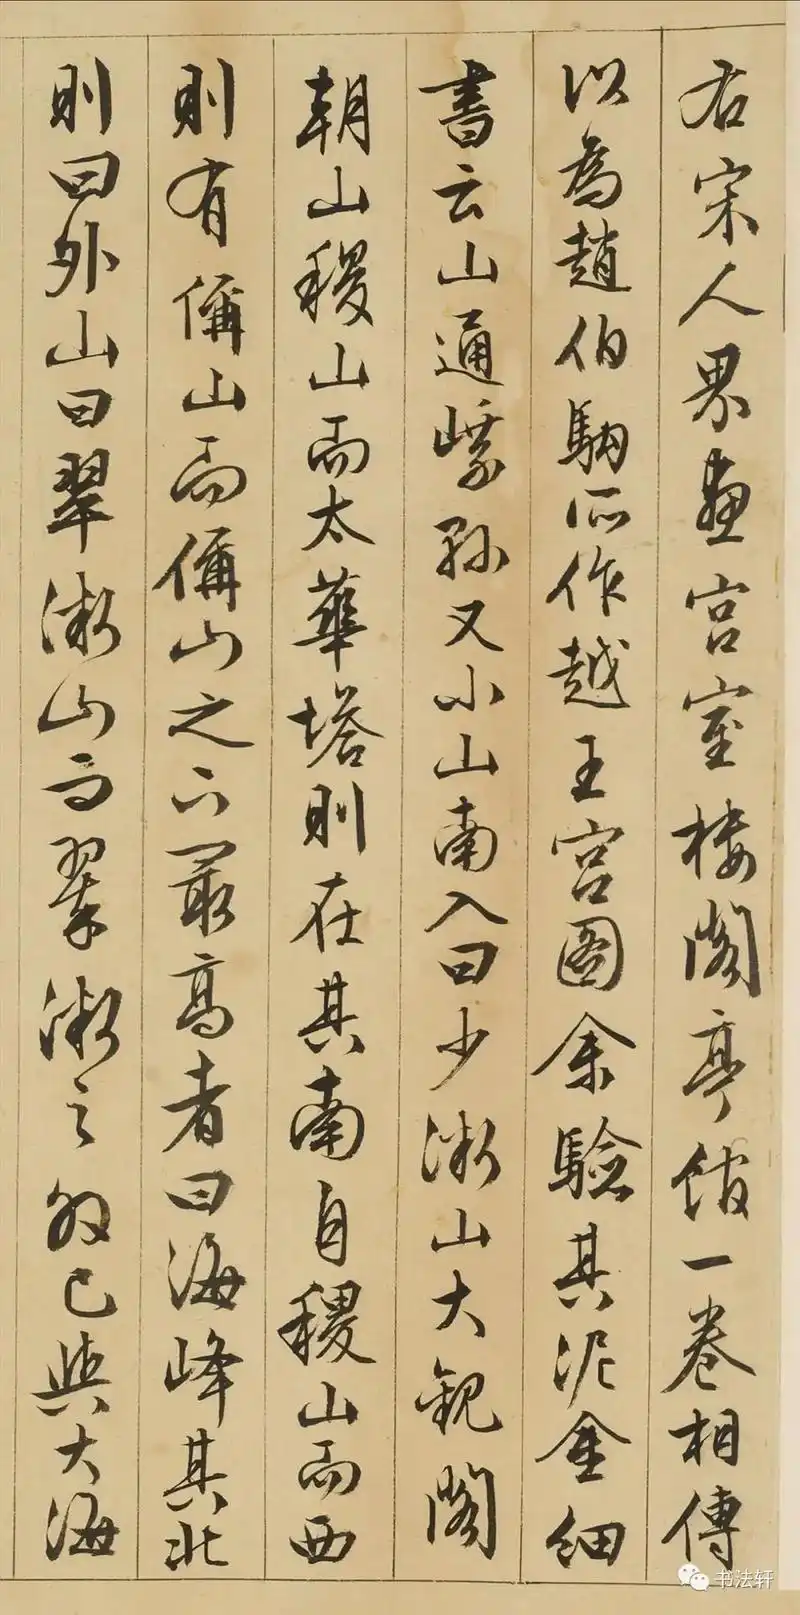 右宋人界畫宮室樓閣亭館一卷相傳
以為趙伯駒所作越王宮圖余驗其泥金細
書云山通又小山南入曰少微山大觀閣
朝山稷山而太華塔則在其南自稷山而西
則有偁山而偁山之下最高者曰海峰其北
則曰外山曰翠微山而翠微之外已與大海
书法轩